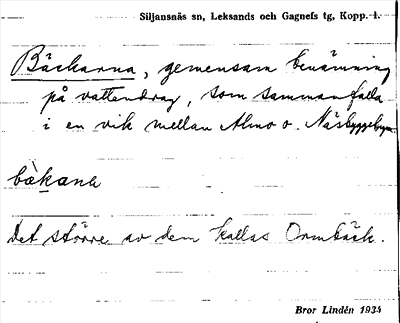 Siljansnäs sn, Leksands och Gagnefs tg, Kopp. l.
Bäckarna, gemensam benämning
på vattendrag, som sammanfalla
i en vik mellan Almo o. Näsbyggebyn.
bækanɑ
Det större av dem kallas Ormbäck.
Bror Lindén 1934